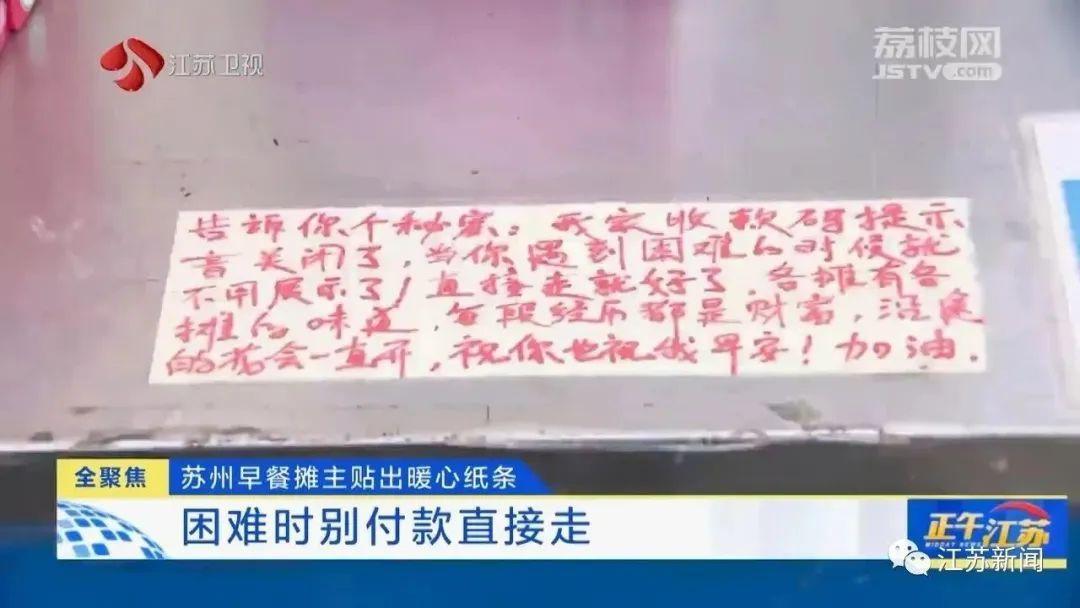 江苏卫视
荔枝网
JSTV.com
告诉你个秘密：我家收款码提示
音关闭了，当你遇到困难的时候就
不用展示了！直接走就好了，各摊有各
摊的味道，每段经历都是财富，沿途
的花会一直开，祝你也祝我早安！加油.
全聚焦
苏州早餐摊主贴出暖心纸条
困难时别付款直接走
正午江苏
MIDDAY NEWS
江苏新闻